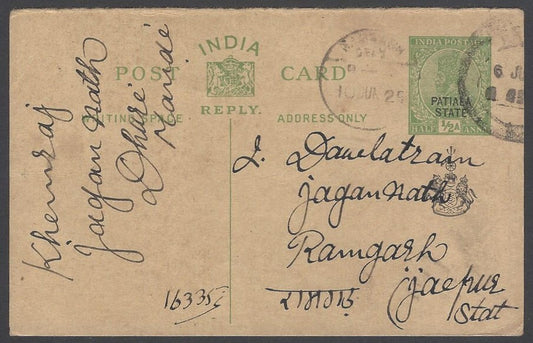 INDIA
POST CARD
REPLY.
WRITING SPACE
ADDRESS ONLY
INDIA POSTAGE
PATIALA
STATE
HALF ½A ANNA
10 JUN 25
6 JU
Khemraj
Jagan nath
Dhuri
L. Daulatram
Jagan nath
Ramgarh
Jaepur
Stat
रामगढ़